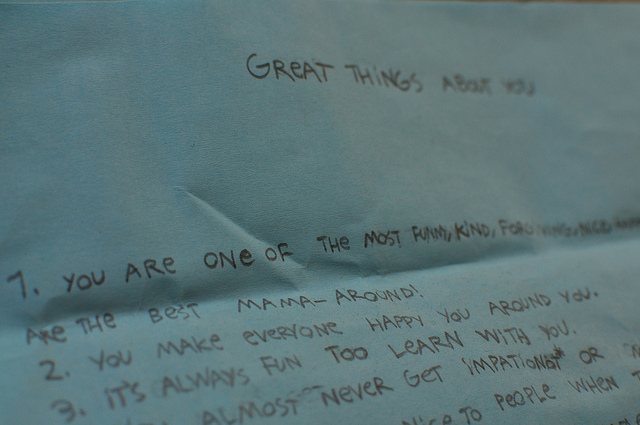 GREAT THINGS ABOUT YOU
1. YOU ARE ONE OF THE MOST FUNNY, KIND, FORGIVING, NICE
ARE THE BEST MAMA-AROUND!
2. YOU MAKE EVERYONE HAPPY YOU AROUND YOU.
3. IT'S ALWAYS FUN TOO LEARN WITH YOU.
ALMOST NEVER GET IMPATIONAT OR
NICE TO PEOPLE WHEN